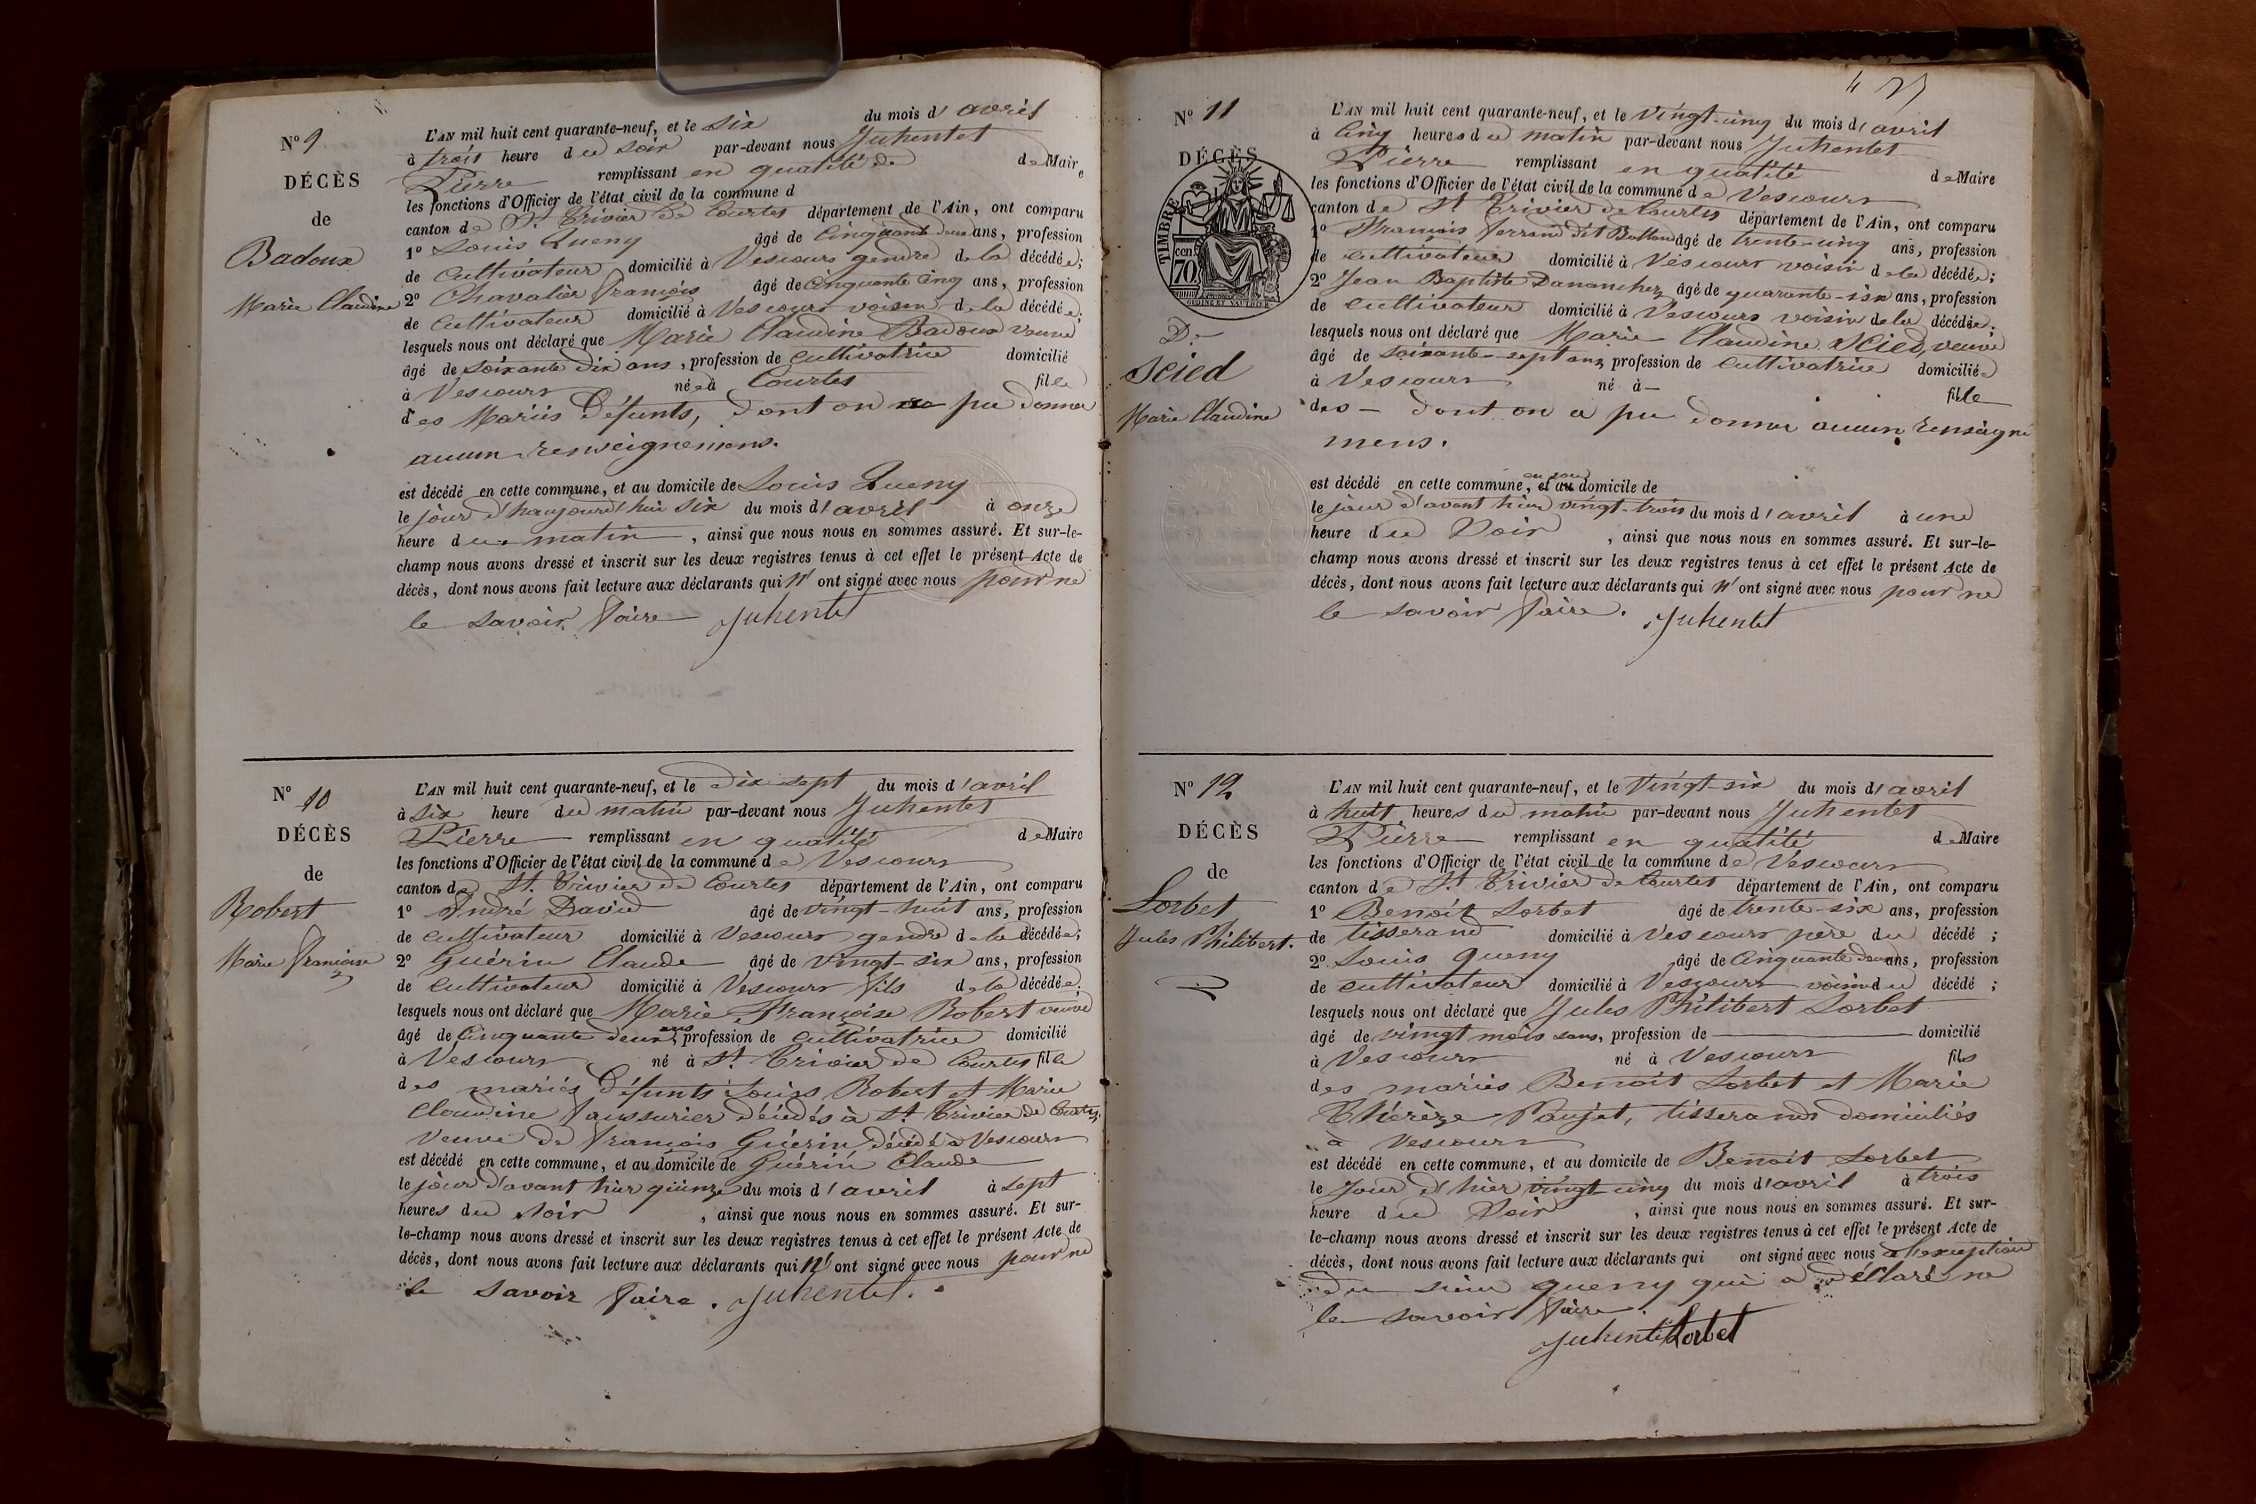 N° 9
DÉCÈS
de
Badoux
Marie Claudine
L'AN mil huit cent quarante-neuf, et le six du mois d'avril
à trois heure du soir par-devant nous Juhentet
Pierre remplissant en qualité de de Maire
les fonctions d'Officier de l'état civil de la commune d
canton de St. Trivier de Courtes département de l'Ain, ont comparu
1° Louis Queny âgé de Cinquante deux ans, profession
de Cultivateur domicilié à Vescours gendre de la décédée;
2° Chavalier François âgé de Cinquante Cinq ans, profession
de Cultivateur domicilié à Vescours voisin de la décédée;
lesquels nous ont déclaré que Marie Claudine Badoux veuve
âgé de Soixante Dix ans, profession de Cultivatrice domicilié
à Vescours née à Courtes fille
des Mariés Défunts, dont on pu donner
aucun renseignemens.
est décédé en cette commune, et au domicile de Louis Queny
le jour d'haujourd'hui Six du mois d'avril à onze
heure du matin, ainsi que nous nous en sommes assuré. Et sur-le-
champ nous avons dressé et inscrit sur les deux registres tenus à cet effet le présent Acte de
décès, dont nous avons fait lecture aux déclarants qui n'ont signé avec nous pour ne
le savoir faire Juhentet
N° 10
DÉCÈS
de
Robert
Marie Françoise
L'AN mil huit cent quarante-neuf, et le Dix sept du mois d'avril
à Six heure du matin par-devant nous Juhentet
Pierre remplissant en qualité de Maire
les fonctions d'Officier de l'état civil de la commune de Vescours
canton de St. Trivier de Courtes département de l'Ain, ont comparu
1° André David âgé de vingt-huit ans, profession
de Cultivateur domicilié à Vescours gendre de la décédée;
2° Guérin Claude âgé de vingt-six ans, profession
de Cultivateur domicilié à Vescours fils de la décédée.
lesquels nous ont déclaré que Marie Françoise Robert veuve
âgé de Cinquante deux ans, profession de Cultivatrice domicilié
à Vescours né à St. Trivier de Courtes fille
des mariés Défunts Louis Robert et Marie
Claudine Faussurier décédés à St Trivier de Courtes,
veuve de François Guérin, décédé à Vescours
est décédé en cette commune, et au domicile de Guérin Claude
le jour d'avant hier quinze du mois d'avril à sept
heures du soir, ainsi que nous nous en sommes assuré. Et sur-
le-champ nous avons dressé et inscrit sur les deux registres tenus à cet effet le présent Acte de
décès, dont nous avons fait lecture aux déclarants qui n'ont signé avec nous pour ne
le savoir faire. Juhentet.
N° 11
DÉCÈS
TIMBRE
70 cen
De
Scied
Marie Claudine
L'AN mil huit cent quarante-neuf, et le Vingt-cinq du mois d'avril
à Cinq heures du matin par-devant nous Juhentet
Pierre remplissant en qualité de Maire
les fonctions d'Officier de l'état civil de la commune de Vescours
canton de St Trivier de Courtes département de l'Ain, ont comparu
1° François Ferrand dit âgé de trente-cinq ans, profession
de cultivateur domicilié à Vescours voisin de la décédée;
2° Jean Baptiste Dananchez âgé de quarante-six ans, profession
de Cultivateur domicilié à Vescours voisin de la décédée;
lesquels nous ont déclaré que Marie Claudine Scied, veuve
âgé de Soixante-sept ans, profession de Cultivatrice domiciliée
à Vescours né à — fille
des — dont on a pu donner aucun renseigne
mens.
est décédé en cette commune, en son et au domicile de
le jour d'avant hier vingt-trois du mois d'avril à une
heure du Soir, ainsi que nous nous en sommes assuré. Et sur-le-
champ nous avons dressé et inscrit sur les deux registres tenus à cet effet le présent Acte de
décès, dont nous avons fait lecture aux déclarants qui n'ont signé avec nous pour ne
le savoir faire. Juhentet
N° 12
DÉCÈS
de
Lorbet
Jules Philibert.
L'AN mil huit cent quarante-neuf, et le Vingt-six du mois d'avril
à huit heures du matin par-devant nous Juhentet
Pierre remplissant en qualité de Maire
les fonctions d'Officier de l'état civil de la commune de Vescours
canton de St Trivier de Courtes département de l'Ain, ont comparu
1° Benoît Lorbet âgé de trente-six ans, profession
de tisserand domicilié à Vescours père du décédé;
2° Louis Queny âgé de Cinquante deux ans, profession
de cultivateur domicilié à Vescours voisin du décédé;
lesquels nous ont déclaré que Jules Philibert Lorbet
âgé de vingt mois ans, profession de — domicilié
à Vescours né à Vescours fils
des mariés Benoît Lorbet et Marie
Thérèze Paujet, tisserands domiciliés
à Vescours
est décédé en cette commune, et au domicile de Benoît Lorbet
le Jour d'hier vingt cinq du mois d'avril à trois
heure du Soir, ainsi que nous nous en sommes assuré. Et sur-
le-champ nous avons dressé et inscrit sur les deux registres tenus à cet effet le présent Acte de
décès, dont nous avons fait lecture aux déclarants qui ont signé avec nous a l'exception
du sieur queny qui a déclaré ne
le savoir faire.
Juhentet Lorbet